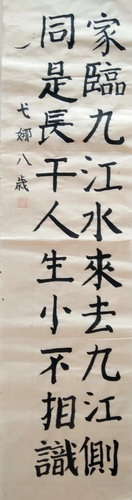 家臨九江水來去九江側
同是長干人生小不相識
弋娜八歲